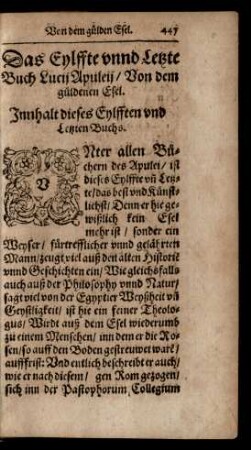 Von dem gülden Esel. 447
Das Eylffte vnnd Letzte
Buch Lucij Apuleij / Von dem
güldenen Esel.
Innhalt dieses Eylfften vnd
Letzten Buchs.
VNter allen Bü-
chern des Apulei / ist
dieses Eylffte vñ Letz-
te / das best vnd Künst-
lichst / Denn er hie ge-
wißlich kein Esel
mehr ist / sonder ein
Weyser / fürtrefflicher vnnd gelährten
Mann / zeugt viel auß den alten Historiē
vnnd Geschichten ein / Wie gleichsfalls
auch auß der Philosophy vnnd Natur /
sagt viel von der Egyptier Weyßheit vñ
Geystligkeit / ist hie ein feiner Theolo-
gus / Wirdt auß dem Esel wiederumb
zu einem Menschen / inn dem er die Ro-
sen / so auff den Boden gestreuwet warē /
aufffrist: Vnd entlich beschreibt er auch /
wie er nach diesem / gen Rom gezogen /
sich inn der Pastophorum, Collegium